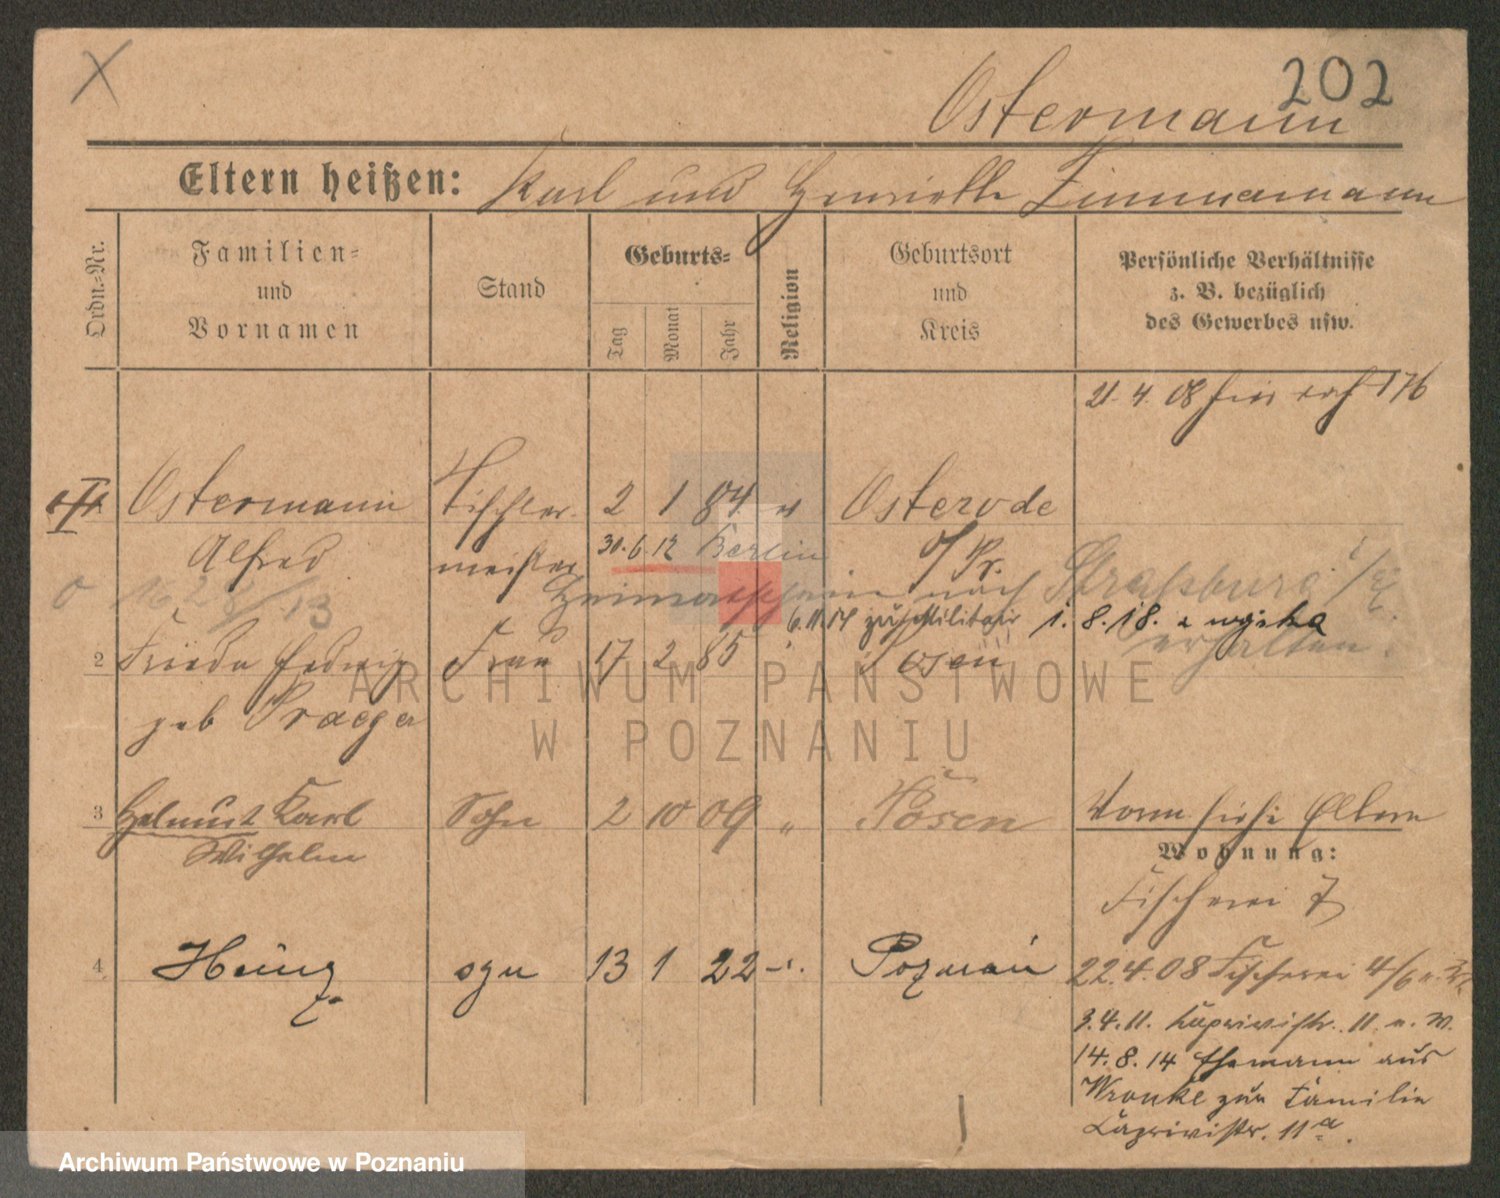 202
Ostermann
Eltern heißen: Karl und Henriette Zimmermann
Ordn.-Nr.
Familien- und Vornamen
Stand
Geburts-
Tag
Monat
Jahr
Religion
Geburtsort und Kreis
Persönliche Verhältnisse
z. B. bezüglich
des Gewerbes usw.
21. 4. 08 176
Ostermann Tischler- 2 1 84. Osterode
Alfred meister 30.6.12 Berlin O/Pr.
Heimatschein nach Straßburg
6.11.14 zum Militair 1. 8. 18.
erhalten.
2 Frieda Hedwig Frau 17 2 85 Posen
geb Praeger
3 Helmut Karl Sohn 2 10 09 " Posen
Wilhelm
Vorm siehe Eltern
Wohnung:
Fischerei 7
4 Heinz syn 13 1 22 Poznań
22.4.08 Fischerei 4/6
3.4.11. Caprivistr. 11
14.8.14 Ehemann aus
Wronke zur Familie
Caprivistr. 11a.
ARCHIWUM PAŃSTWOWE
W POZNANIU
Archiwum Państwowe w Poznaniu